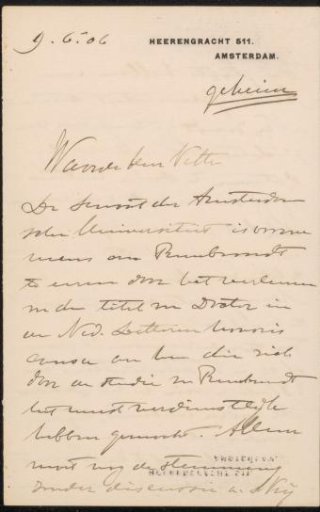 9.6.06
HEERENGRACHT 511.
AMSTERDAM.
geheim
Waarde heer Veth
De Senaat der Amsterdam
sche Universiteit is voorne
mens om Rembrandt
te eeren door het verleenen
van den titel van Doctor in
de Ned. Letteren honoris
causa aan hen die zich
door de studie van Rembrandt
het meest verdienstelijk
hebben gemaakt. Alleen
moet nog de stemming
zonder discussie